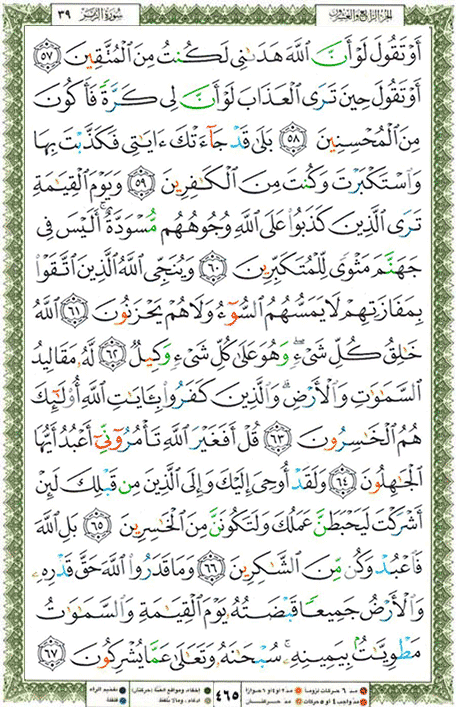 سُورَةُ الزُّمَرِ ٣٩
الجزء الرابع والعشرون
أَوْ تَقُولَ لَوْ أَنَّ اللَّهَ هَدَىٰنِي لَكُنتُ مِنَ الْمُتَّقِينَ ٥٧
أَوْ تَقُولَ حِينَ تَرَى الْعَذَابَ لَوْ أَنَّ لِي كَرَّةً فَأَكُونَ
مِنَ الْمُحْسِنِينَ ٥٨ بَلَىٰ قَدْ جَآءَتْكَ ءَايَٰتِي فَكَذَّبْتَ بِهَا
وَاسْتَكْبَرْتَ وَكُنتَ مِنَ الْكَٰفِرِينَ ٥٩ وَيَوْمَ الْقِيَٰمَةِ
تَرَى الَّذِينَ كَذَبُوا۟ عَلَى اللَّهِ وُجُوهُهُم مُّسْوَدَّةٌ ۚ أَلَيْسَ فِي
جَهَنَّمَ مَثْوًى لِّلْمُتَكَبِّرِينَ ٦٠ وَيُنَجِّي اللَّهُ الَّذِينَ اتَّقَوْا۟
بِمَفَازَتِهِمْ لَا يَمَسُّهُمُ السُّوٓءُ وَلَا هُمْ يَحْزَنُونَ ٦١ اللَّهُ
خَٰلِقُ كُلِّ شَيْءٍ ۖ وَهُوَ عَلَىٰ كُلِّ شَيْءٍ وَكِيلٌ ٦٢ لَّهُۥ مَقَالِيدُ
السَّمَٰوَٰتِ وَالْأَرْضِ ۗ وَالَّذِينَ كَفَرُوا۟ بِـَٔايَٰتِ اللَّهِ أُو۟لَٰٓئِكَ
هُمُ الْخَٰسِرُونَ ٦٣ قُلْ أَفَغَيْرَ اللَّهِ تَأْمُرُوٓنِّيٓ أَعْبُدُ أَيُّهَا
الْجَٰهِلُونَ ٦٤ وَلَقَدْ أُوحِيَ إِلَيْكَ وَإِلَى الَّذِينَ مِن قَبْلِكَ لَئِنْ
أَشْرَكْتَ لَيَحْبَطَنَّ عَمَلُكَ وَلَتَكُونَنَّ مِنَ الْخَٰسِرِينَ ٦٥ بَلِ اللَّهَ
فَاعْبُدْ وَكُن مِّنَ الشَّٰكِرِينَ ٦٦ وَمَا قَدَرُوا۟ اللَّهَ حَقَّ قَدْرِهِۦ
وَالْأَرْضُ جَمِيعًا قَبْضَتُهُۥ يَوْمَ الْقِيَٰمَةِ وَالسَّمَٰوَٰتُ
مَطْوِيَّٰتٌۢ بِيَمِينِهِۦ ۚ سُبْحَٰنَهُۥ وَتَعَٰلَىٰ عَمَّا يُشْرِكُونَ ٦٧
٤٦٥